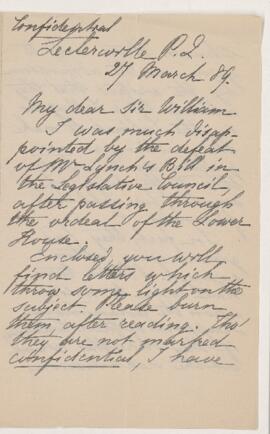 Confidential
Leclercville P.Q.
27 March 89.
My dear Sir William
I was much disap-
pointed by the defeat
of Mr Lynch's Bill in
the Legislative Council,
after passing through
the ordeal of the Lower
House.
Enclosed, you will,
find letters which
throw some light on the
subject. Please burn
them, after reading. Tho'
they are not marked
confidential, I have